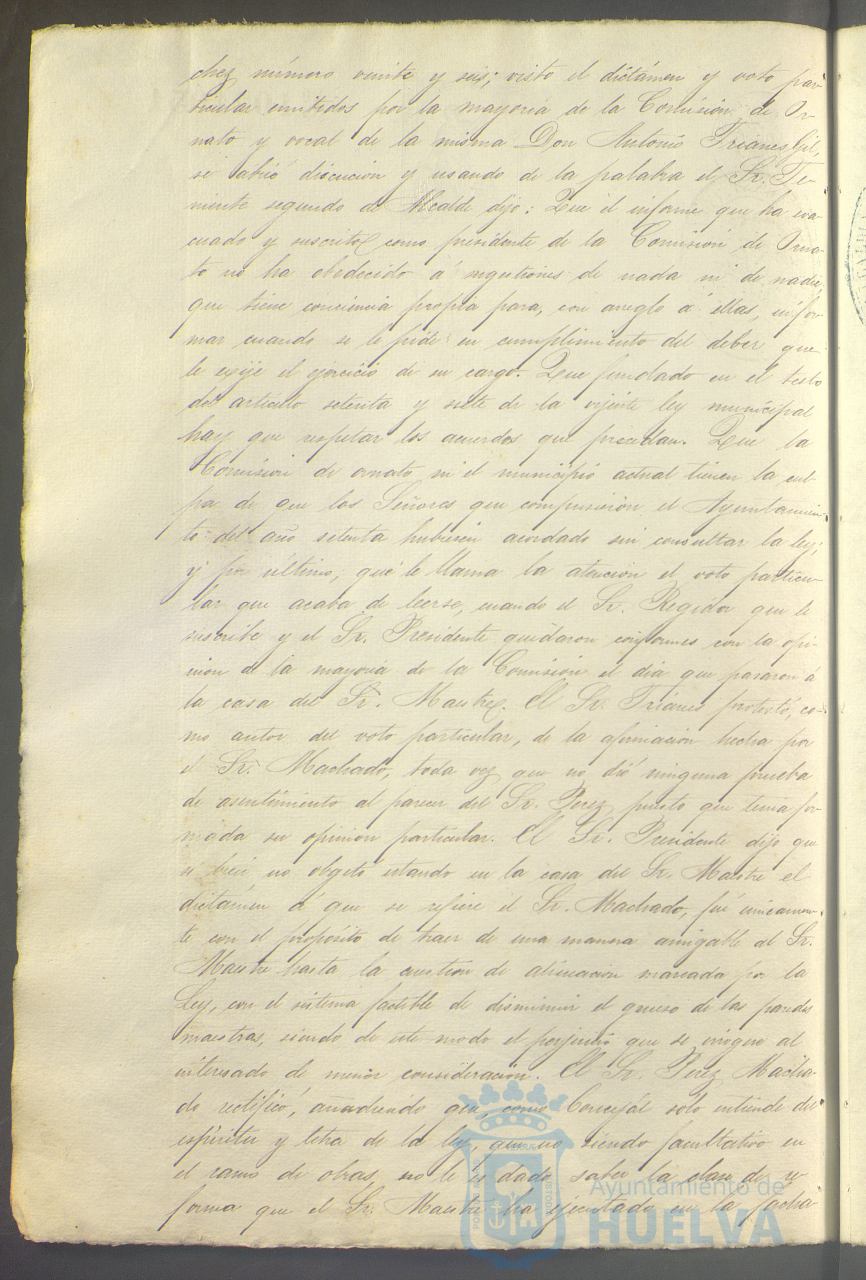 chez número veinte y seis; visto el dictámen y voto par-
ticular emitidos por la mayoría de la Comisión de Or-
nato y vocal de la misma Don Antonio Trianes Gil,
se abrió discución y usando de la palabra el Sr. Te-
niente segundo de Alcalde dijo: Que el informe que ha eva-
cuado y suscrito como presidente de la Comisión de Orna-
to no ha obedecido á sugestiones de nada ni de nadie,
que tiene conciencia propia para, con arreglo á ellas, infor-
mar cuando se le pide en cumplimiento del deber que
le exije el ejercicio de su cargo. Que fundado en el testo
del artículo setenta y siete de la vijente ley municipal
hay que respetar los acuerdos que procedan. Que la
Comisión de ornato ni el municipio actual tienen la cul-
pa de que los Señores que compusieron el Ayuntamien-
to del año setenta hubiesen acordado sin consultar la ley;
y por último, que le llama la atención el voto particu-
lar que acaba de leerse, cuando el Sr. Regidor que lo
suscribe y el Sr. Presidente quedaron conformes con la opi-
nion de la mayoría de la Comisión el dia que pasaron á
la casa del Sr. Maestre. El Sr. Trianes protestó, co-
mo autor del voto particular, de la afirmación hecha por
el Sr. Machado, toda vez que no dió ninguna prueba
de asentimiento al parecer del Sr. Perez puesto que tenia for-
mada su opinión particular. El Sr. Presidente dijo que
si bien no objetó estando en la casa del Sr. Maestre el
dictámen á que se refiere el Sr. Machado, fué unicamen-
te con el propósito de traer de una manera amigable al Sr.
Maestre hasta la cuestion de alineacion marcada por la
Ley, con el sistema factible de disminuir el grueso de las paredes
maestras, siendo de este modo el perjuicio que se irogue al
interesado de menor consideración. El Sr. Perez Macha-
do rectificó, anadiendo que, como Concejal solo entiende del
espíritu y letra de la ley, que no siendo facultativo en
el ramo de obras, no le és dado saber la clase de re-
forma que el Sr. Maestre ha ejecutado en la facha-
Ayuntamiento de
HUELVA